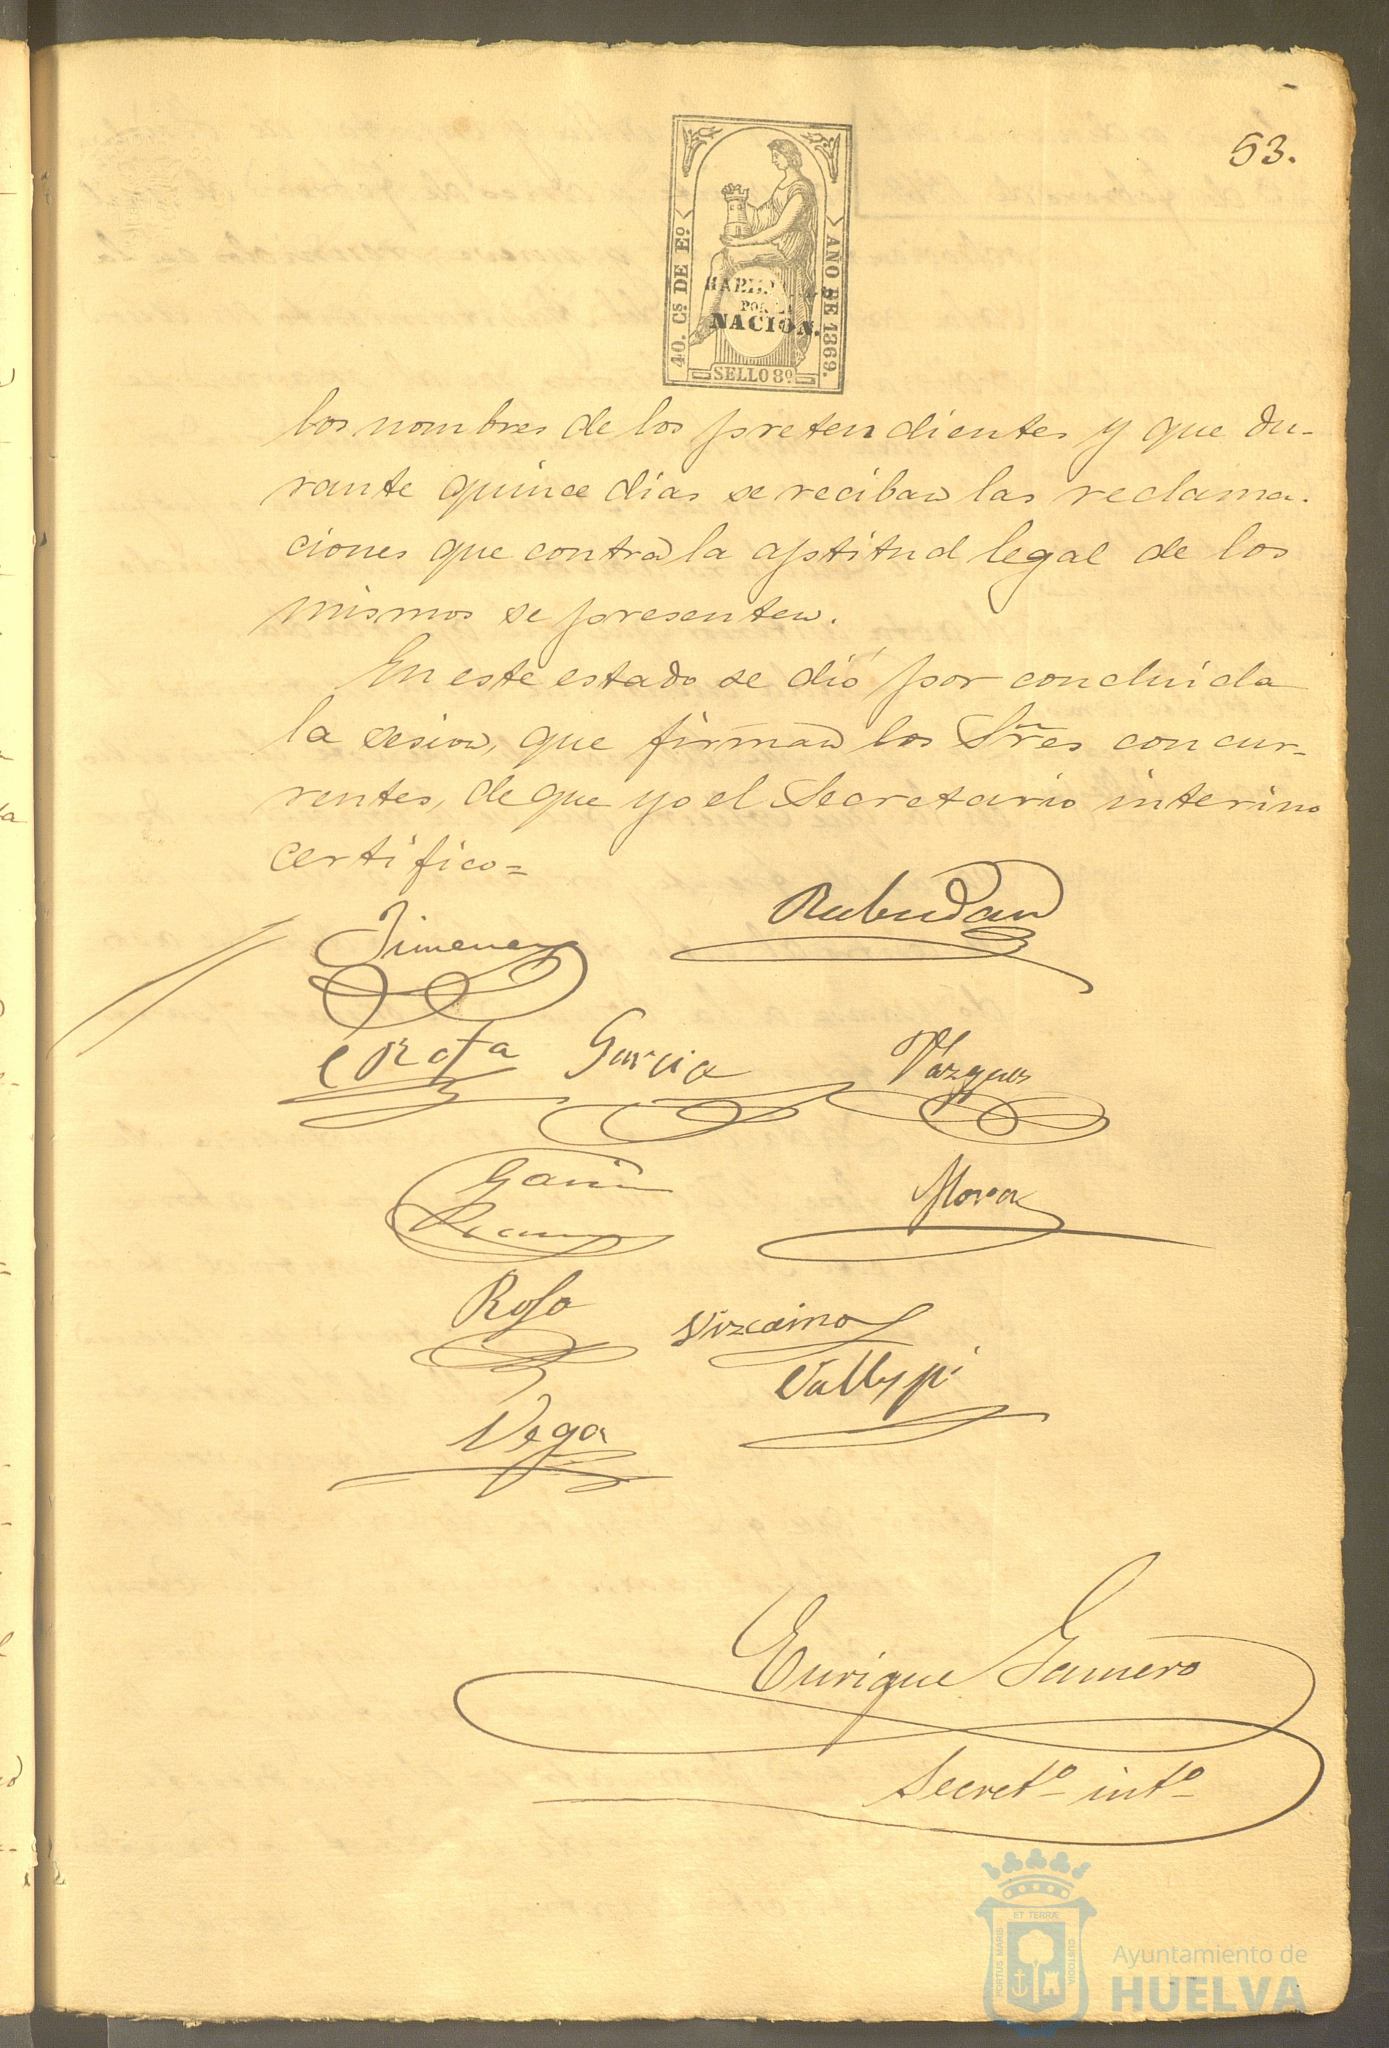 53.
40. Cs DE Eº.
AÑO DE 1869.
POR LA
NACION.
SELLO 8º
los nombres de los pretendientes y que du-
rante quince dias se reciban las reclama-
ciones que contra la aptitud legal de los
mismos se presenten.
En este estado se dió por concluida
la sesion, que firman los Sres concur-
rentes, de que yo el Secretario interino
certifico=
Jimenez
Garcia Vazquez
Mora
Vizcaino
Vega
Enrique
Secretº intº
ET TERRÆ
PORTUS MARIS
CUSTODIA
Ayuntamiento de
HUELVA